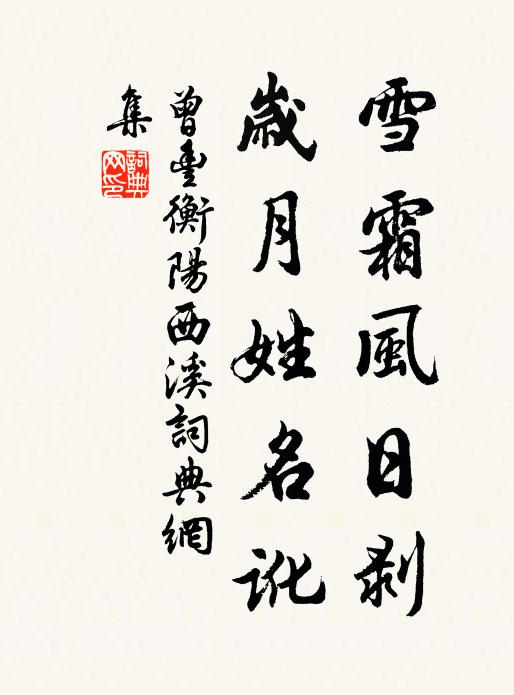 雪霜風日剥
歲月姓名訛
曾豐衡陽西溪詞典網
集
詞典
网印